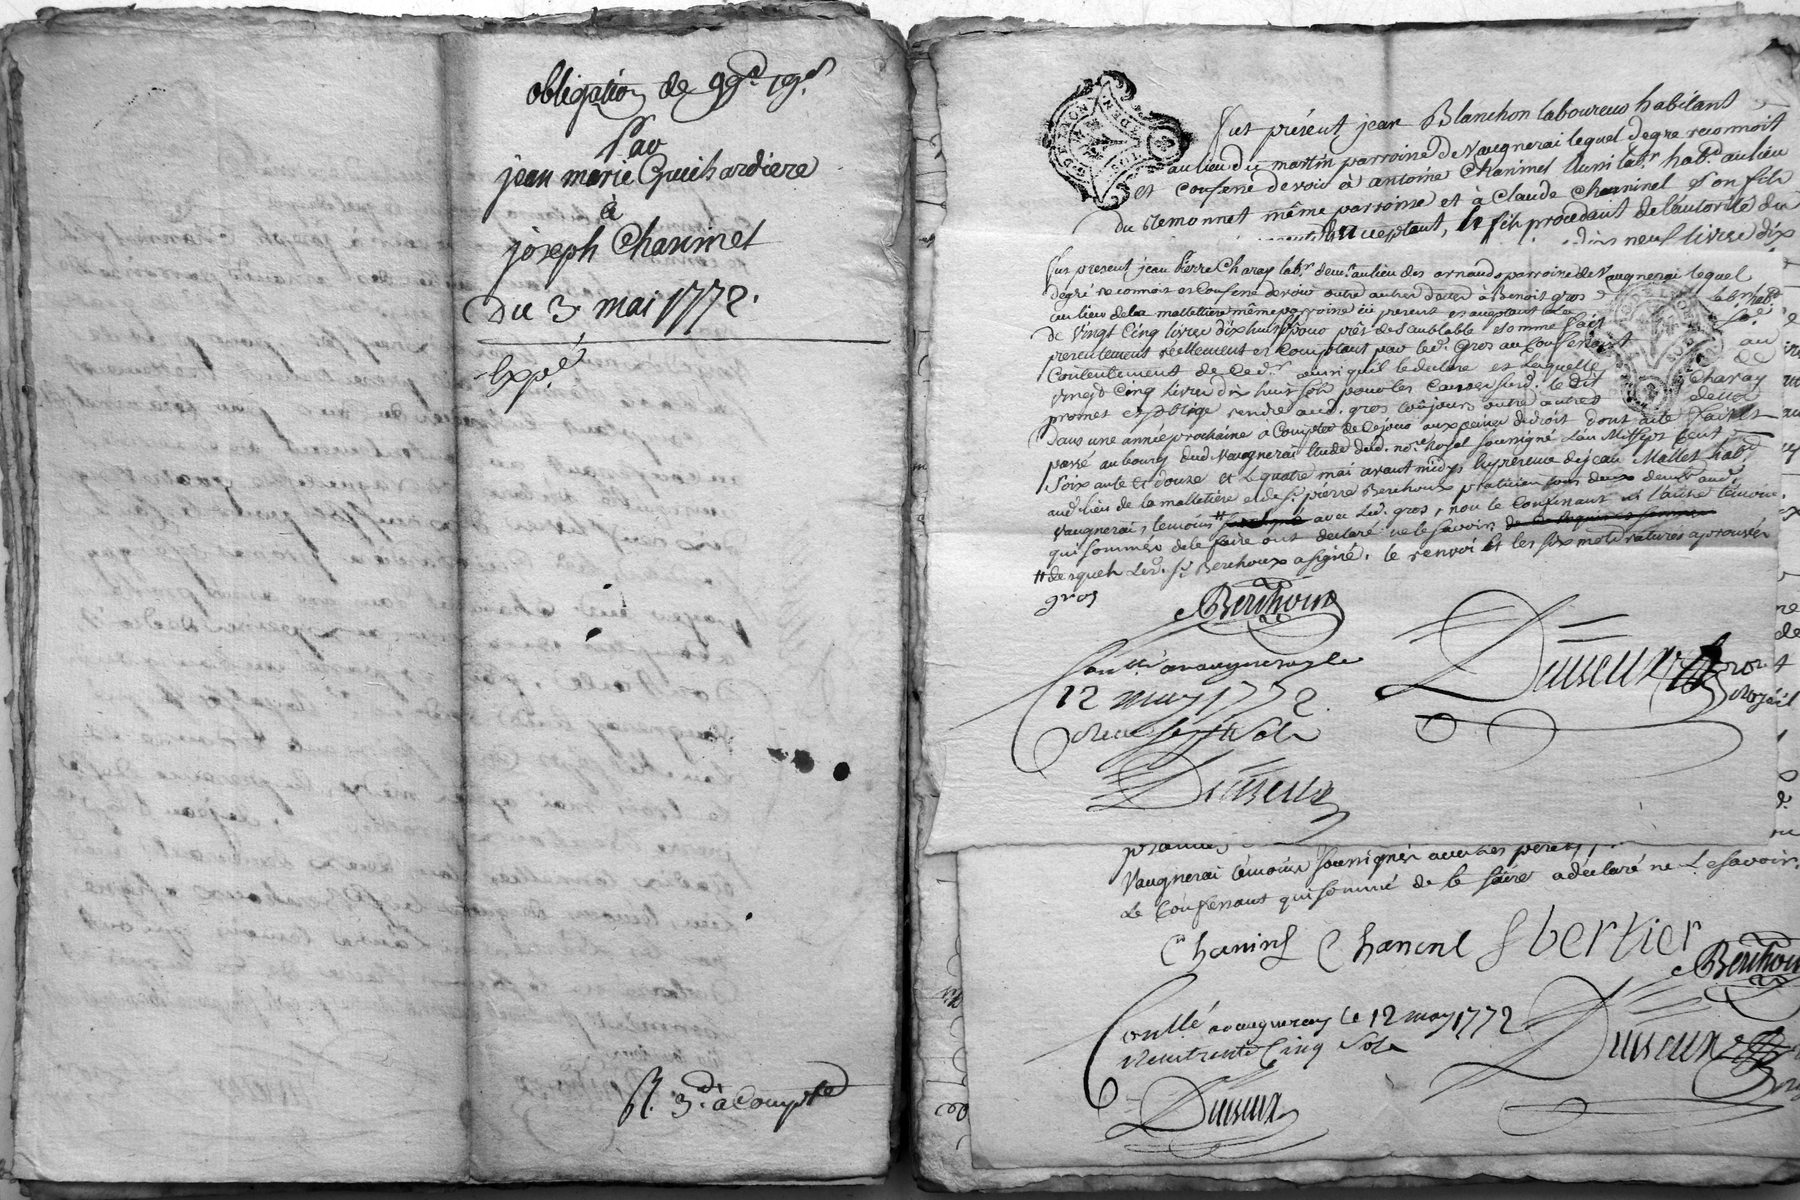 obligation de 99# 19s
Par
jean marie Guichardiere
à
joseph Chaninel
Du 3 mai 1772.
Expé
R. 3# à Compte
Fut présent jean Blanchon laboureur habitant
au lieu du martin parroisse de Vaugnerai lequel de gré reconnoit
et Confesse devoir à antoine Chaninel labr habt au lieu
du Remonnet même parroisse et à Claude Chaninel son fils
acceptant, le fils procedant de l'autorité du
dix neuf livres dix
Fut present jean Pierre Charay labr demt au lieu des arnauds parroisse de Vaugnerai lequel
de gré reconnoit et Confesse devoir outre autre deub à Benoit gros labr habt
au lieu de la malletière même parroisse ici present et acceptant la se
de Vingt Cinq livres dix huit sols pour prêt de semblable somme fait au
presentement réellement et Comptant par led. Gros au Confessant de
Contentement de Ced. ainsi qu'il le declare et laquelle Charay
vingt Cinq livres dix huit sols pour les Causes susd. le dit
promet et s'oblige rendre aud. gros toujours outre autres
dans une année prochaine à Compter de Ce jour aux peines de droit dont acte fait et
passé au bourg dud. Vaugnerai Etude dud. nore royal soussigné L'an Mil sept Cent
soixante et douze et le quatre mai avant midy En presence de jean Mallet habt
aud. lieu de la malletière et de sr. pierre Berchoux praticien tous deux demt aud.
Vaugnerai, temoins # avec led. gros, non le Confessant ni l'autre témoin
qui sommés de le faire ont declaré ne le savoir
# desquels led. sr. Berchoux a signé. le renvoi et les six mots raturés aprouvés
gros
Berchoux
Dusseux nore royal
Contllé a vaugneray le
12 may 1772.
Reçu sept sols
Dusseux
Vaugnerai témoins soussignés avec les
le Confessant qui sommé de le faire a déclaré ne Le savoir.
Chaninl Chaninel f bertier Berchoux
Contllé a vaugneray le 12 may 1772
Reçu trente Cinq sols
Dusseux
Dusseux